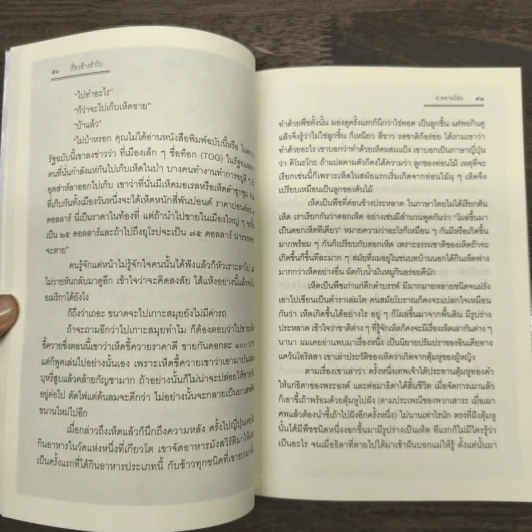 ๕๐ เรื่องข้างสำรับ
"ไปทำอะไร"
"ก็ว่าจะไปเก็บเห็ดขาย"
"บ้าแล้ว"
"ไม่บ้าหรอก คุณไม่ได้อ่านหนังสือพิมพ์ฉบับนี้หรือ
รัฐฉบับนี้เขาลงข่าวว่า ที่เมืองเล็ก ๆ ชื่อท็อก (TOG) ในรัฐ
คนที่นั่นกำลังแห่กันไปเก็บเห็ดในป่า บางคนทำงานทำการอยู่ดี ๆ
อุตส่าห์ลาออกไปเก็บ เขาว่าที่นั่นมีเห็ดมอเรลหรือเห็ด
ที่เก็บกันทั้งเมืองวันหนึ่งจะได้เห็ดหนักสี่พันปอนด์ ราคาปอนด์ละ
ดอลลาร์ นี่เป็นราคาในท้องที่ แต่ถ้านำไปขายในเมืองใหญ่ ๆ
เป็น ๒๕ ดอลลาร์และถ้าไปถึงยุโรปจะเป็น ๗๕ ดอลลาร์
จะตาย"
คนรู้จักแต่หน้าไม่รู้จักใจคนนั้นได้ฟังแล้วก็หัวเราะ
ไม่วายหันกลับมาดูอีก เข้าใจว่าจะคิดสงสัย ไส้แห้งอย่างนี้แล้ว
อเมริกาได้ยังไง
ก็ถึงว่าเถอะ ขนาดจะไปเกาะสมุยยังไม่มีค่ารถ
ถ้าจะถามอีกว่าไปเกาะสมุยทำไม ก็ต้องตอบว่าไป
ขี้ควายซึ่งตอนนี้เขาว่าเห็ดขี้ควายราคาดี ขายกันดอกละ ๑๐๐
แต่ก็พูดเล่นไปอย่างนั้นเอง เพราะเห็ดขี้ควายเขาว่าเอามา
บุหรี่สูบแล้วคล้ายกัญชามาก ถ้าอย่างนั้นก็ไม่น่าจะปล่อยให้
อยู่ต่อไป ตัดไฟแต่ต้นลมจะดีกว่า ไม่อย่างนั้นจะกลายเป็น
ขนานใหม่ไปอีก
เมื่อกล่าวถึงเห็ดแล้วก็นึกถึงความหลัง ครั้งไปญี่ปุ่น
กินอาหารในวัดแห่งหนึ่งที่เกียวโต เขาจัดอาหารมังสวิรัติมา
เป็นครั้งแรกที่ได้กินอาหารประเภทนี้ กับข้าวทุกชนิดที่เขายกมา
ส.พลายน้อย ๕๑
ทำด้วยพืชทั้งนั้น มองดูครั้งแรกก็นึกว่าไข่ทอด เป็นลูกชิ้น แต่พอกินดู
แล้วจึงรู้ว่าไม่ใช่ลูกชิ้น ก็เหนียว สีขาว รสชาติก็อร่อย ได้ถามเขาว่า
ทำด้วยอะไร เขาบอกว่าทำด้วยเห็ดผสมแป้ง เขาบอกเป็นภาษาญี่ปุ่น
ว่า คิโนะโกะ ถ้าแปลตามตัวก็คงได้ความว่า ลูกของท่อนไม้ เหตุที่จะ
เรียกเช่นนี้ก็เพราะเห็ดในสมัยแรกเริ่มเกิดจากท่อนไม้ผุ ๆ เห็ดจึง
เปรียบเหมือนเป็นลูกของต้นไม้
เห็ดเป็นพืชที่ค่อนข้างประหลาด ในภาษาไทยไม่ได้เรียกต้น
เห็ด เราเรียกกันว่าดอกเห็ด อย่างเช่นมีสำนวนพูดกันว่า "โผล่ขึ้นมา
เป็นดอกเห็ดทีเดียว" หมายความว่าอะไรที่เหมือน ๆ กันมีหรือเกิดขึ้น
มากพร้อม ๆ กันก็เปรียบกับดอกเห็ด เพราะธรรมชาติของเห็ดถ้าจะ
เกิดขึ้นก็ขึ้นทีละมาก ๆ สมัยที่ผมอยู่ในชนบทบ้านนอกก็กินเห็ดฟาง
มากกว่าเห็ดอย่างอื่น ผัดกับน้ำมันหมูกินอร่อยดีนัก
เห็ดเป็นพืชเก่าแก่ดึกดำบรรพ์ มีมากมายหลายชนิดจนฝรั่ง
เอาไปเขียนเป็นตำราเล่มโต คนสมัยโบราณก็คงจะแปลกใจเหมือน
กันว่า เห็ดเกิดขึ้นได้อย่างไร อยู่ ๆ ก็โผล่ขึ้นมาจากพื้นดิน มีรูปร่าง
ประหลาด เข้าใจว่าชาติต่าง ๆ ที่รู้จักเห็ดก็คงจะมีเรื่องเห็ดเล่ากันต่าง ๆ
นานา ผมเคยอ่านพบมาเรื่องหนึ่ง เป็นนิยายปรัมปราของอินเดียทาง
แคว้นโอริสสา เขาเล่าประวัติของเห็ดว่าเกิดจากตุ้มหูของผู้หญิง
ตามเรื่องเขาเล่าว่า ครั้งหนึ่งเทพเจ้าได้ประทานตุ้มหูทองคำ
ให้แก่ธิดาของพระองค์ และต่อมาธิดาได้สิ้นชีวิต เมื่อจัดการเผาแล้ว
ก็เอาขี้เถ้าพร้อมด้วยตุ้มหูไปฝัง (ตามประเพณีของพวกสาวระ เมื่อเผา
ศพแล้วต้องนำขี้เถ้าไปฝังอีกครั้งหนึ่ง) ไม่นานเท่าไรนัก ตรงที่ฝังตุ้มหู
นั้นได้มีพืชชนิดหนึ่งงอกขึ้นมามีรูปร่างเป็นเห็ด ทีแรกก็ไม่มีใครรู้ว่า
เป็นอะไร จนเมื่อธิดาที่ตายไปได้มาเข้าฝันบอกแม่ให้รู้ ตั้งแต่นั้นมา